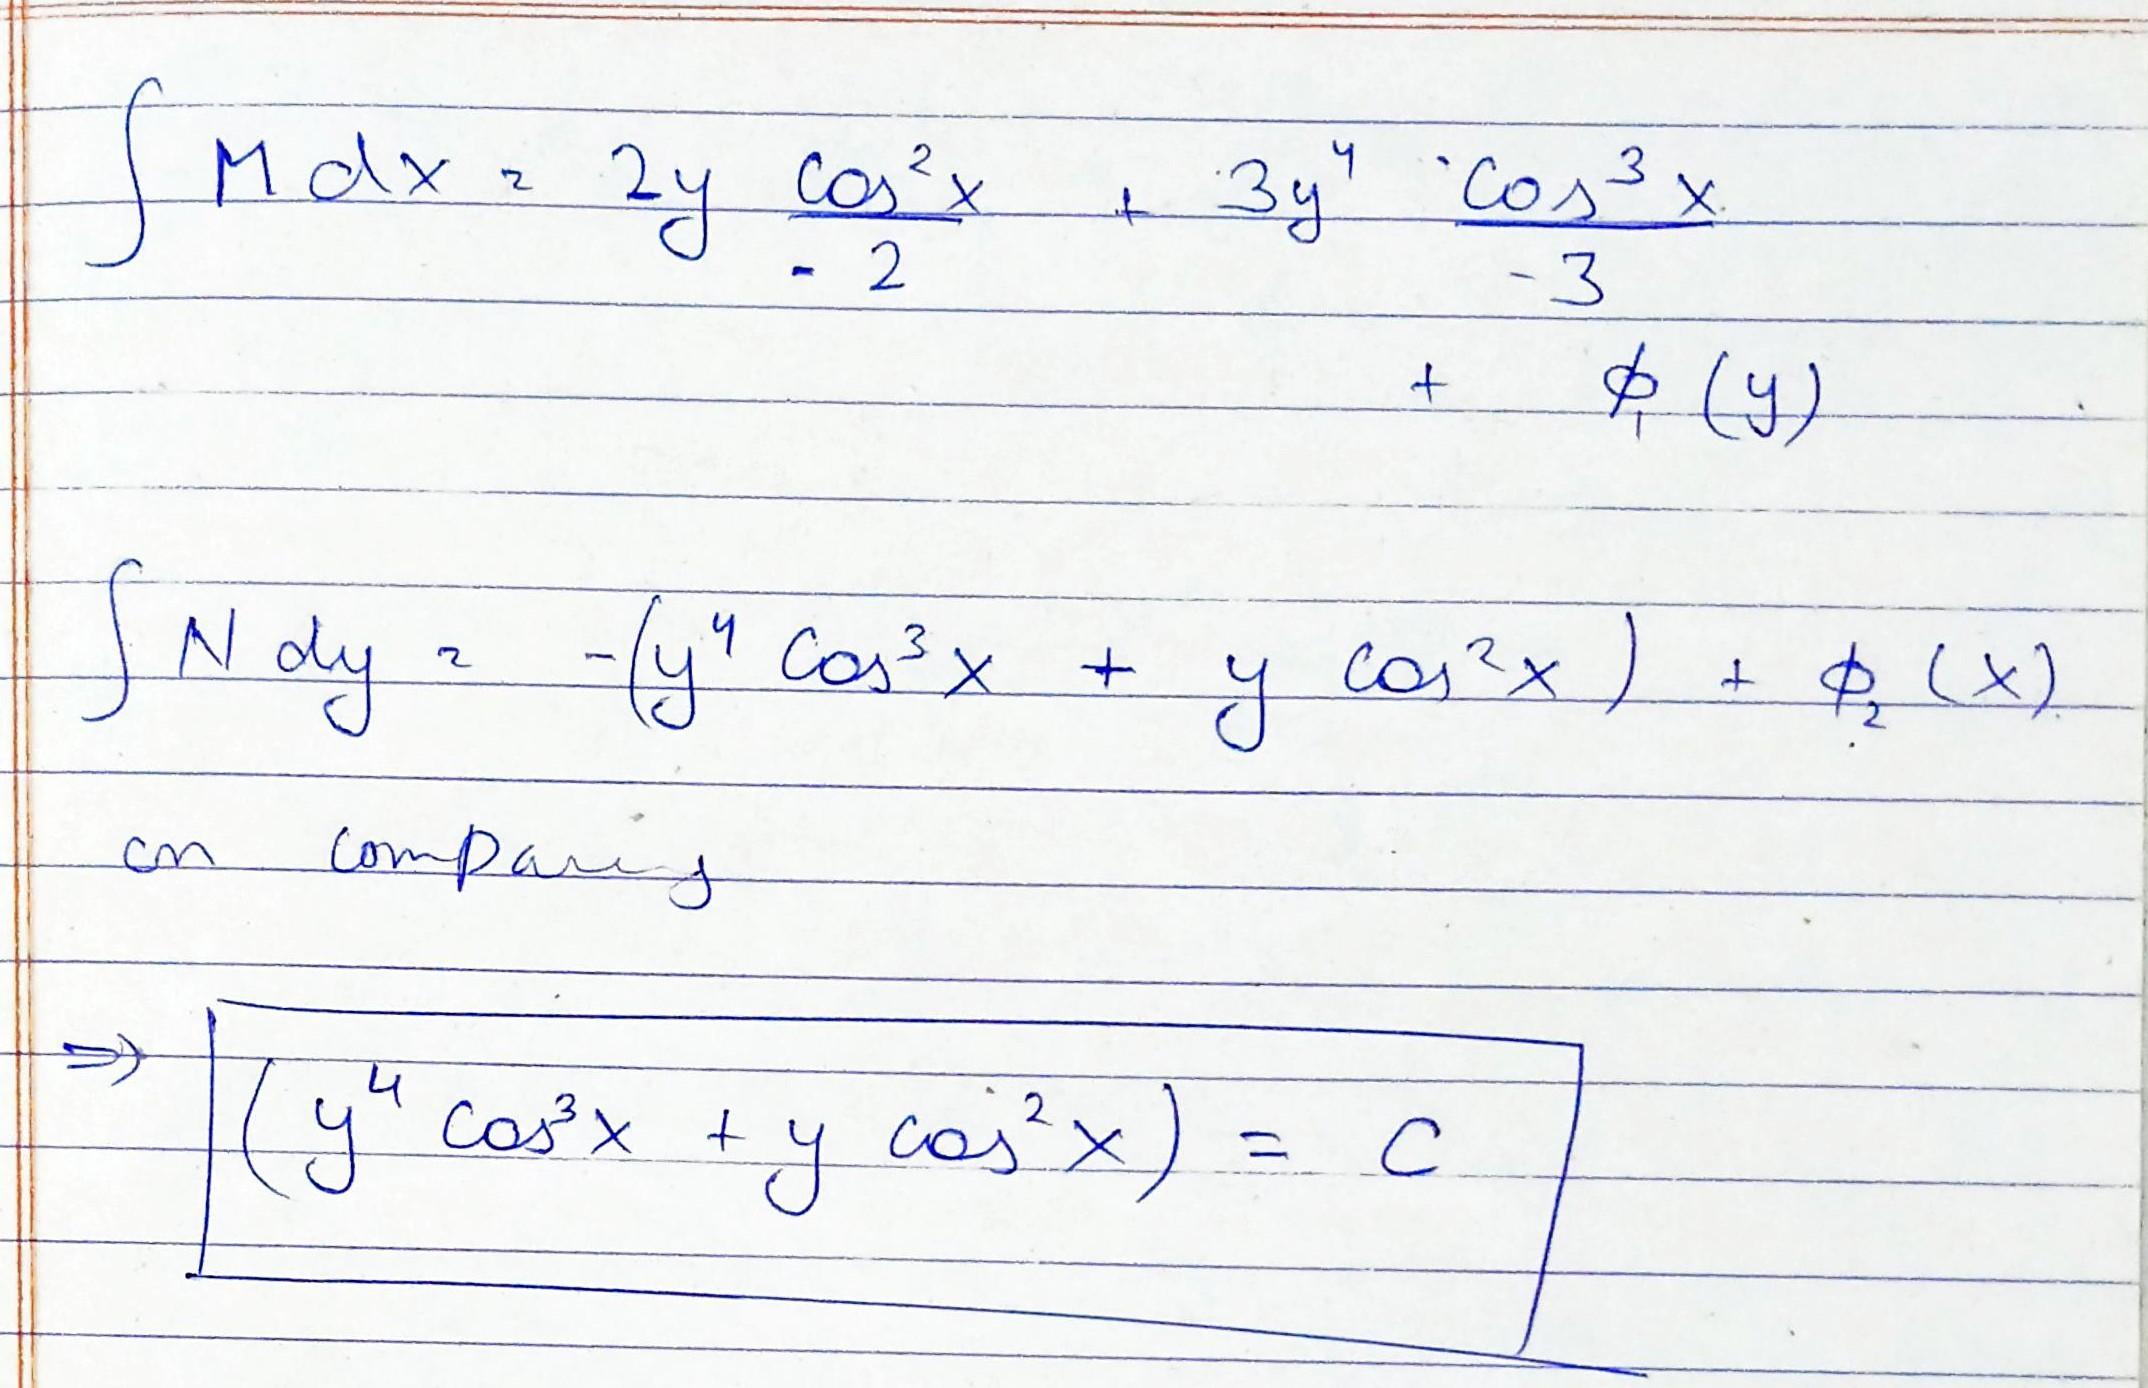 ∫ M dx = 2y cos²x / -2 + 3y⁴ cos³x / -3
+ ϕ₁ (y)
∫ N dy = -(y⁴ cos³x + y cos²x) + ϕ₂ (x)
on comparing
⇒ (y⁴ cos³x + y cos²x) = C